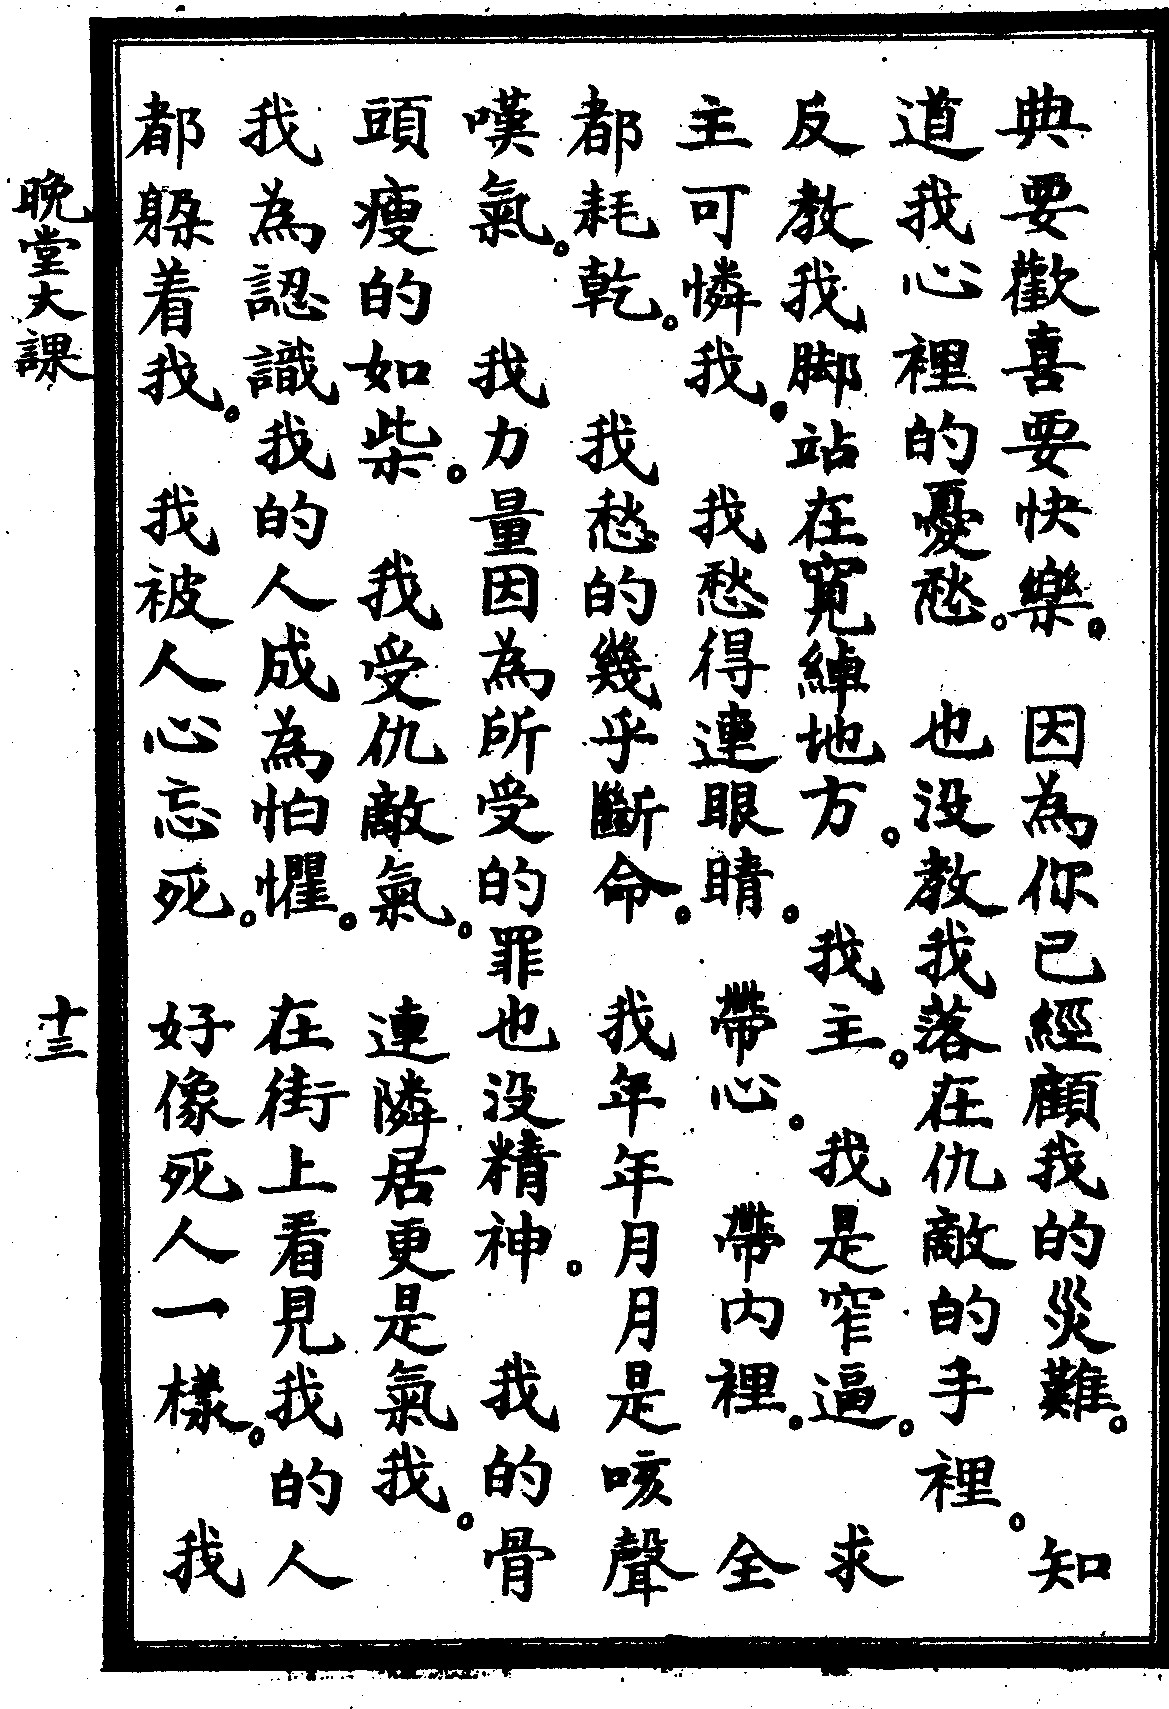 典要歡喜要快樂。因為你已經顧我的災難。知
道我心裡的憂愁。也没教我落在仇敵的手裡。
反教我脚站在寬綽地方。我主。我是窄逼。求
主可憐我。我愁得連眼睛。帶心。帶內裡。全
都耗乾。我愁的幾乎斷命。我年年月月是咳聲
嘆氣。我力量因為所受的罪也没精神。我的骨
頭瘦的如柴。我受仇敵氣。連隣居更是氣我。
我為認識我的人成為怕懼。在街上看見我的人
都躲着我。我被人心忘死。好像死人一樣。我
晚堂大課
十三